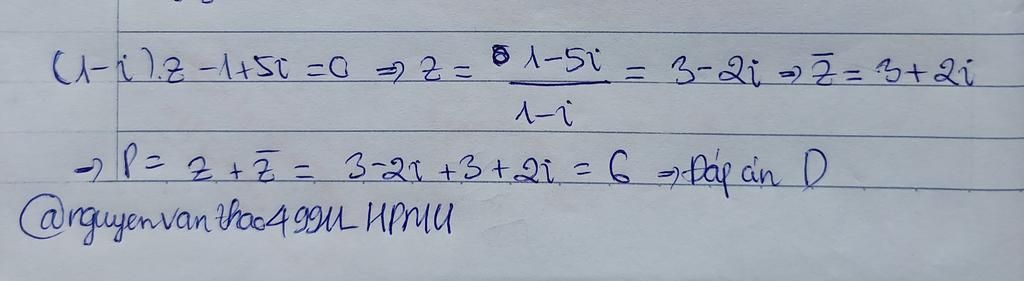 (1-i).z -1+5i = 0 ⇒ z = \frac{1-5i}{1-i} = 3-2i ⇒ \bar{z} = 3+2i
⇒ P = z + \bar{z} = 3-2i+3+2i = 6 ⇒ Đáp án D